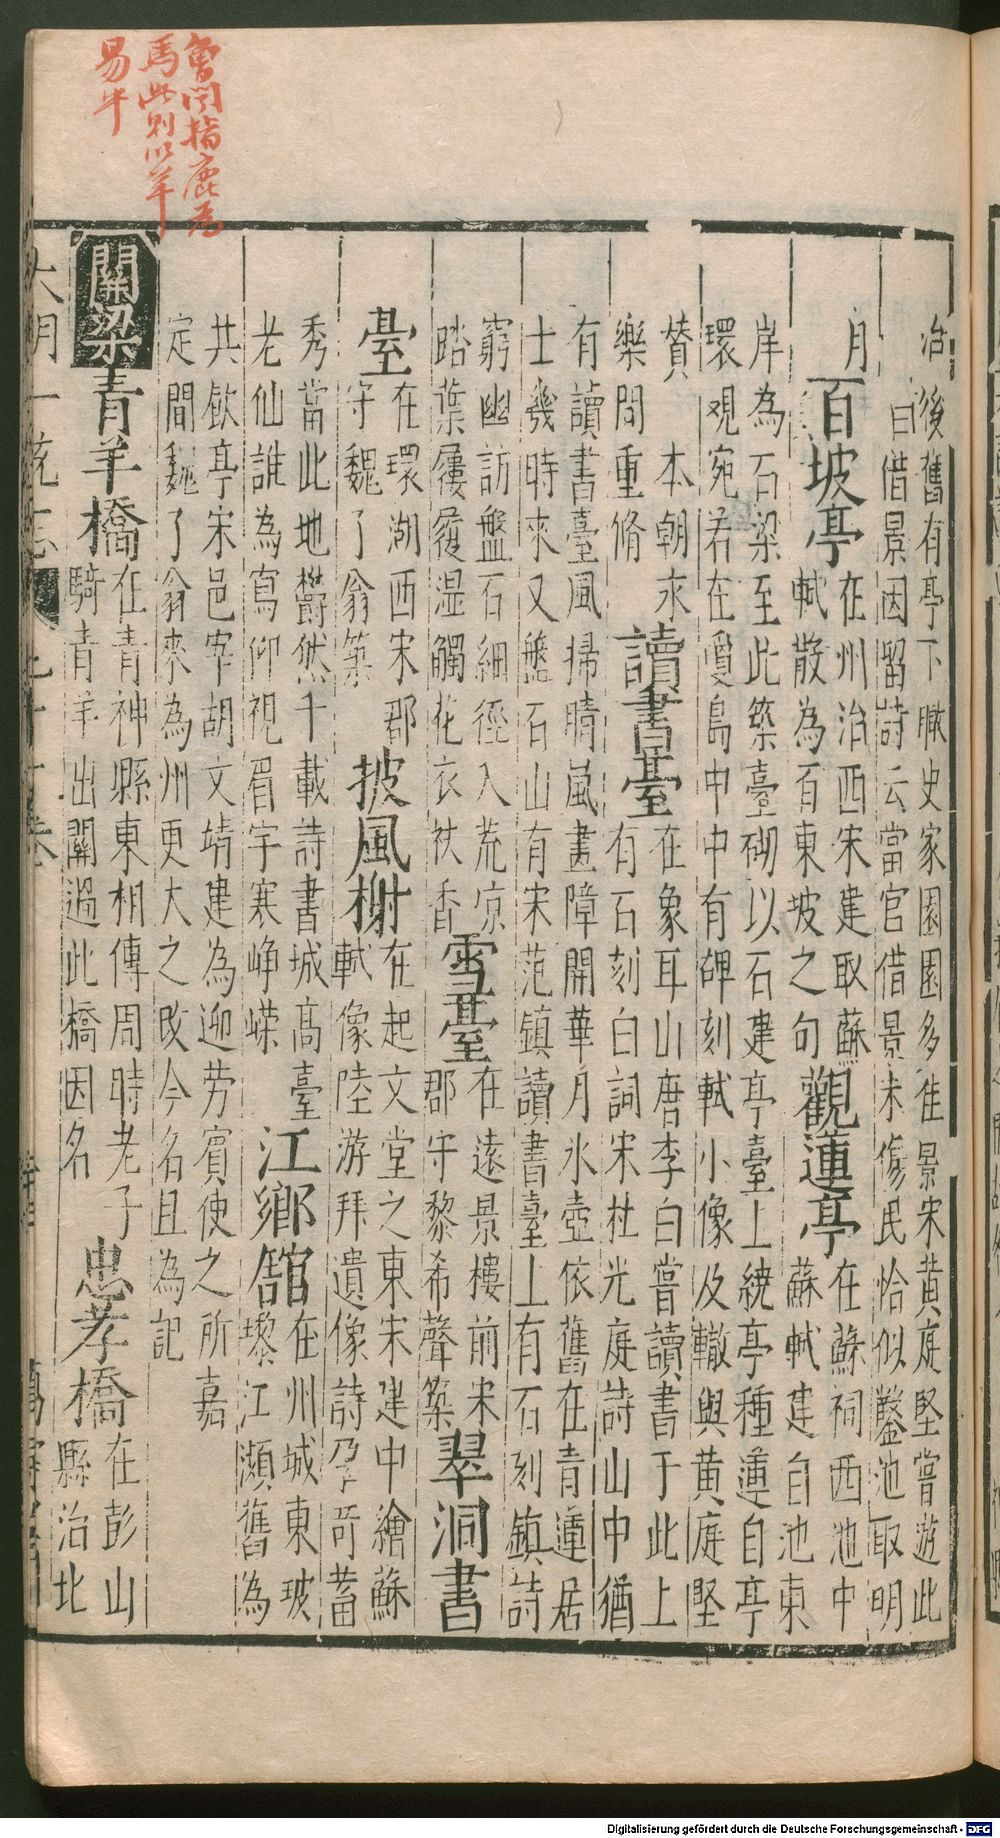 曾聞指鹿為
馬此則以羊
易牛
治後舊有亭下瞰史家園園多佳景宋黃庭堅嘗遊此
曰借景因留詩云當官借景未傷民恰似鑿池取明
月
百坡亭
在州治西宋建取蘇
軾散為百東坡之句
觀蓮亭
在蘇祠西池中
蘇軾建自池東
岸為石梁至此築臺砌以石建亭臺上繞亭種蓮自亭
環觀宛若在島中中有碑刻軾小像及轍與黃庭堅
贊
本朝永
樂間重脩
讀書臺
在象耳山唐李白嘗讀書于此上
有石刻白詞宋杜光庭詩山中猶
有讀書臺風掃晴嵐畫障開華月氷壺依舊在青蓮居
士幾時來又盤石山有宋范鎮讀書臺上有石刻鎮詩
窮幽訪盤石細徑入荒涼
踏葉屨履湿觸花衣袂香
雪臺
在遠景樓前宋
郡守黎希聲築
翠洞書
臺
在環湖西宋郡
守魏了翁築
披風榭
在起文堂之東宋建中繪蘇
軾像陸游拜遺像詩孕奇蓄
秀當此地欝然千載詩書城高臺
老仙誰為寫仰視眉宇寒崢嶸
江鄉舘
在州城東玻
瓈江瀕舊為
共飲亭宋邑宰胡文靖建為迎勞賓使之所嘉
定間魏了翁來為州更大之改今名且為記
關梁
青羊橋
在青神縣東相傳周時老子
騎青羊出關過此橋因名
忠孝橋
在彭山
縣治北
大明一統志
七十一卷
Digitalisierung gefördert durch die Deutsche Forschungsgemeinschaft - DFG